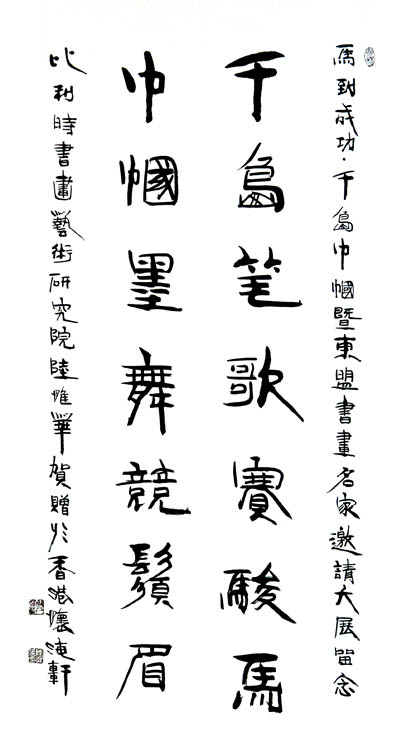 馬到成功·千島巾幗暨東盟書畫名家邀請大展留念
千島笔歌賽駿馬
巾幗墨舞競鬚眉
比利時書畫藝術研究院陸惟華賀贈於香港懷逸軒